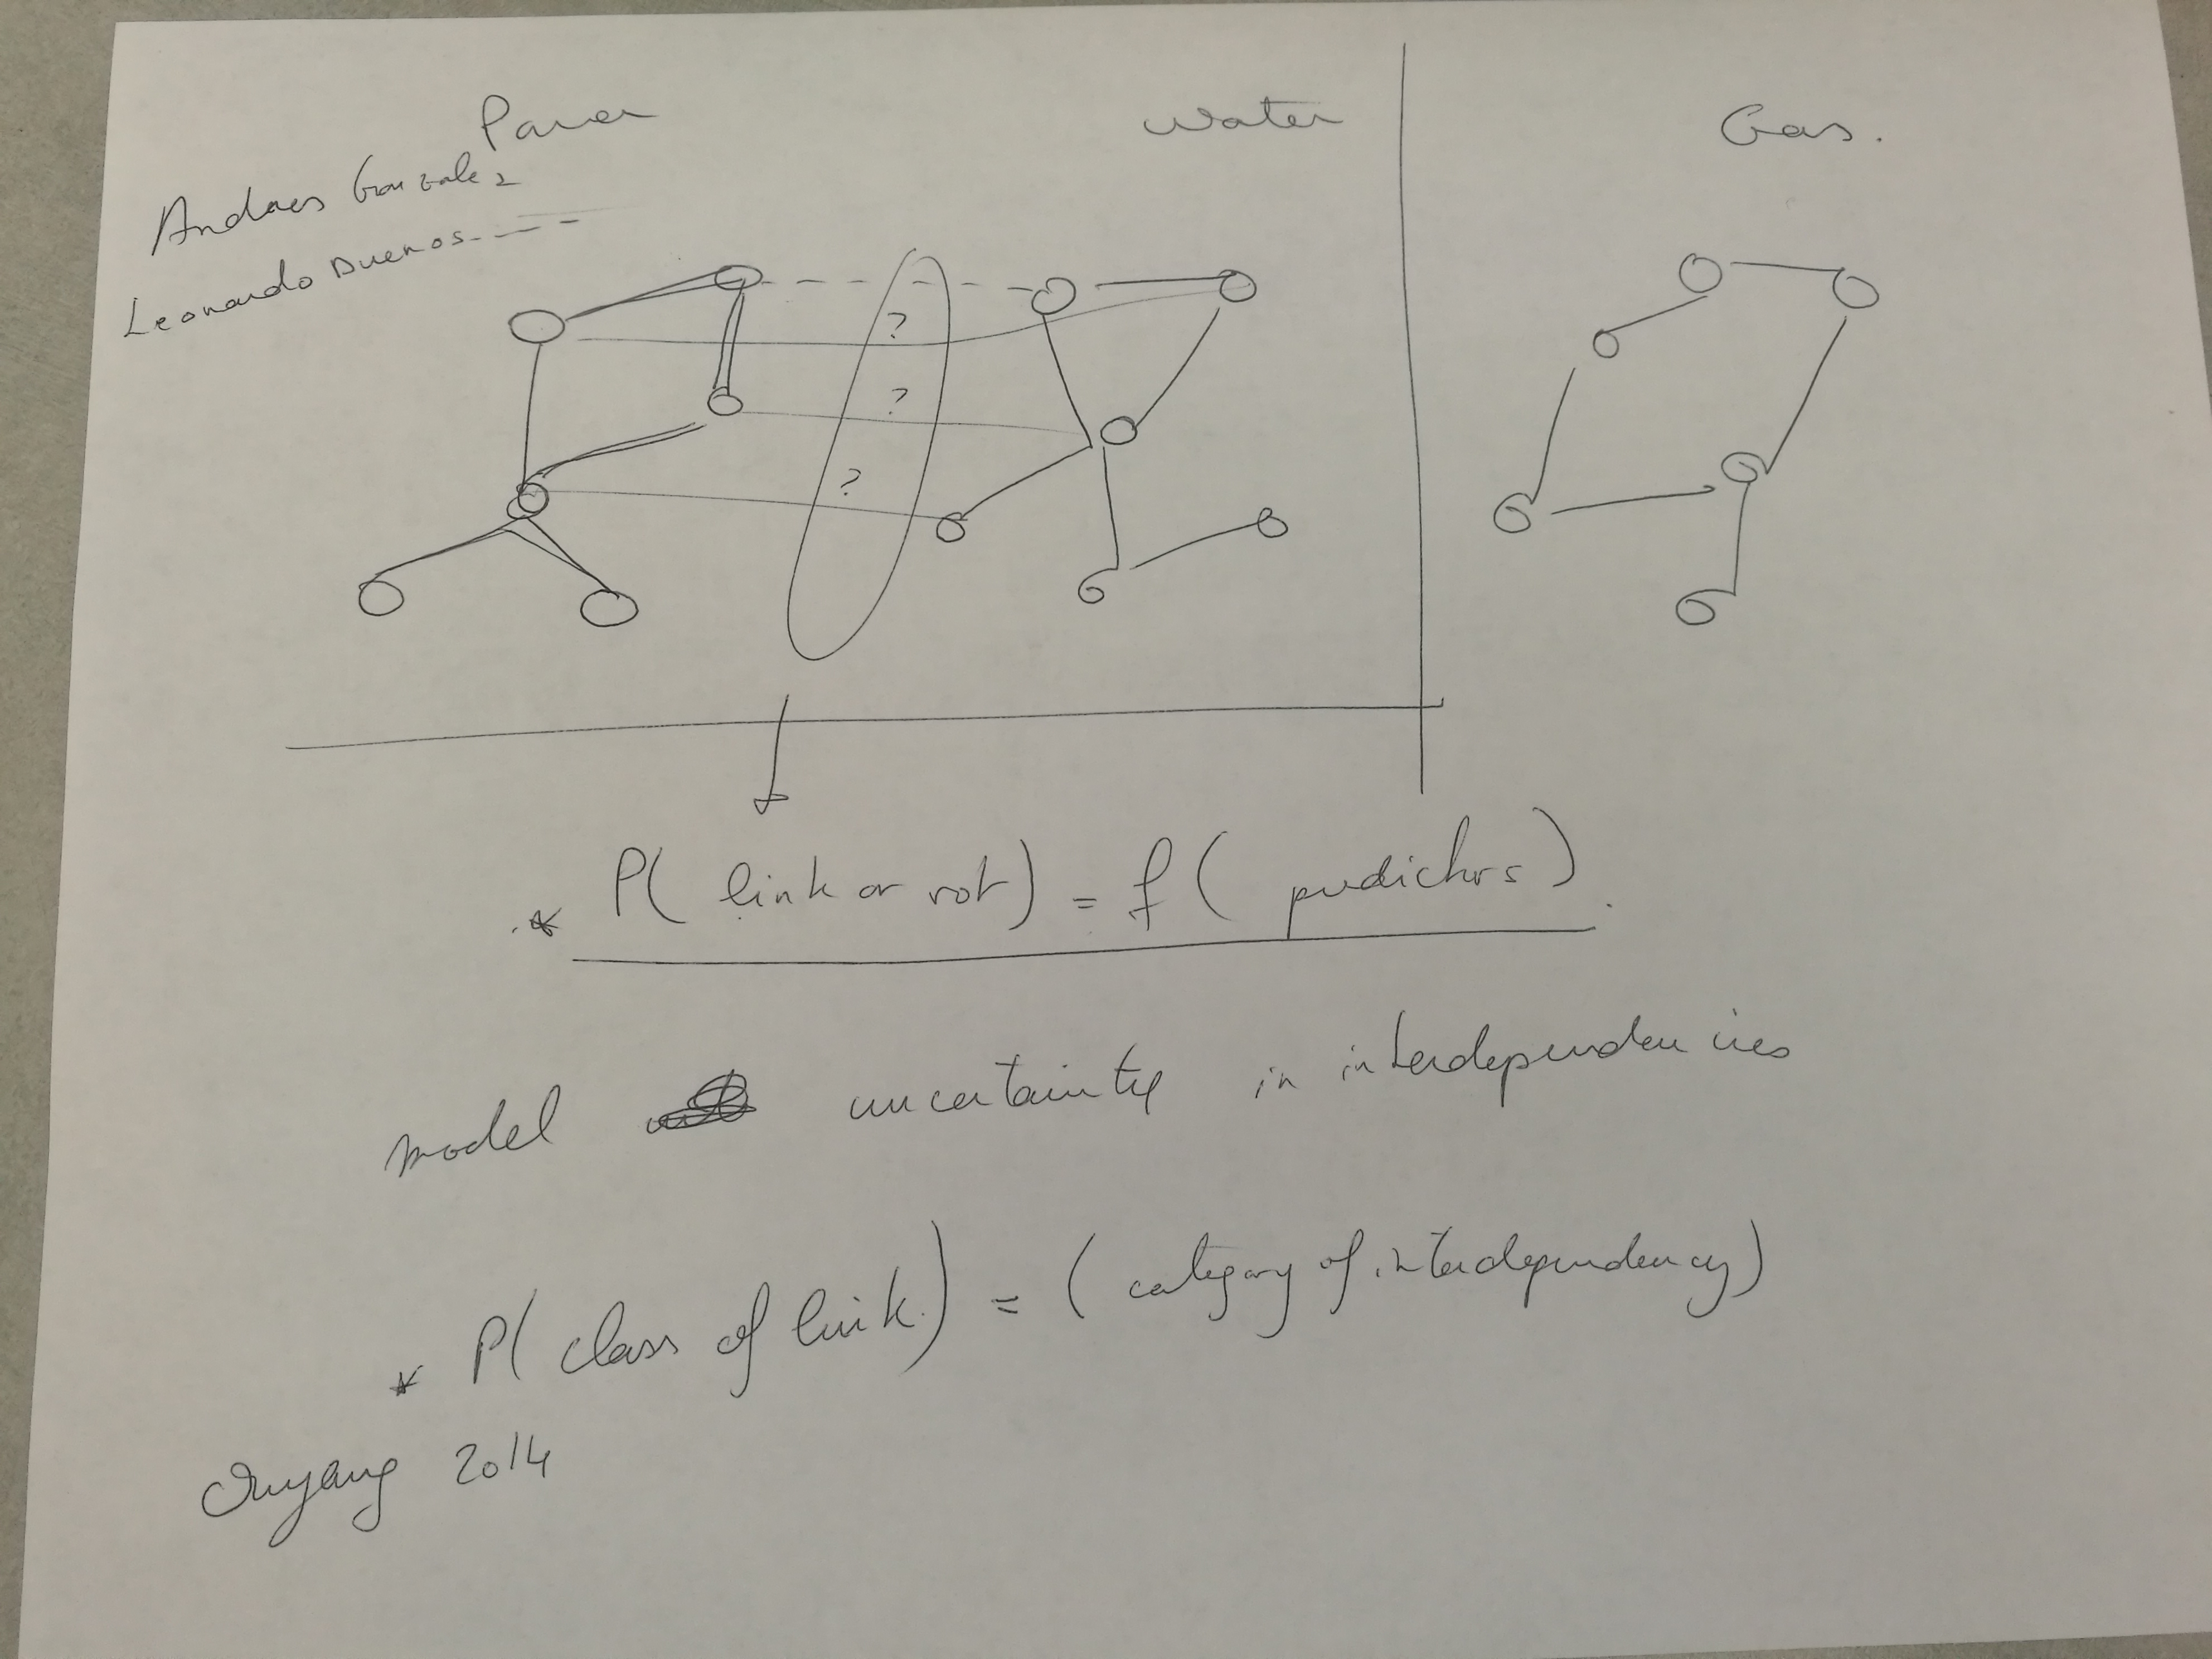 Power
Water
Gas.
Andres Gonzalez
Leonardo Duenos
?
?
?
* P( link or not ) = f ( predictors ).
model uncertainty in interdependencies
* P( class of link.) = ( category of interdependency )
Ouyang 2014